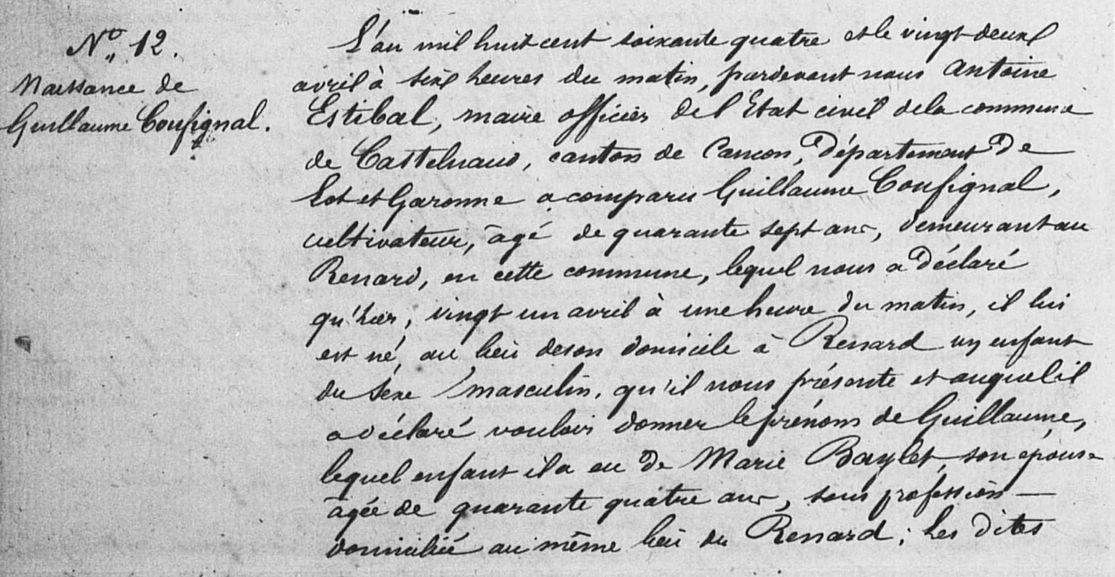 N° 12.
Naissance de
Guillaume Coufignal.
L'an mil huit cent soixante quatre et le vingt deux
avril à six heures du matin, pardevant nous Antoine
Estebal, maire officier de l'Etat civil de la commune
de Castelnaud, canton de Cancon, Département de
Lot et Garonne a comparu Guillaume Coufignal,
cultivateur, âgé de quarante sept ans, demeurant au
Renard, en cette commune, lequel nous a déclaré
qu'hier, vingt un avril à une heure du matin, il lui
est né, au lieu de son domicile à Renard un enfant
du sexe masculin, qu'il nous présente et auquel il
a déclaré vouloir donner le prénom de Guillaume,
lequel enfant il a eu de Marie Baylet, son épouse
âgée de quarante quatre ans, sans profession —
domiciliée au même lieu du Renard ; Les dites